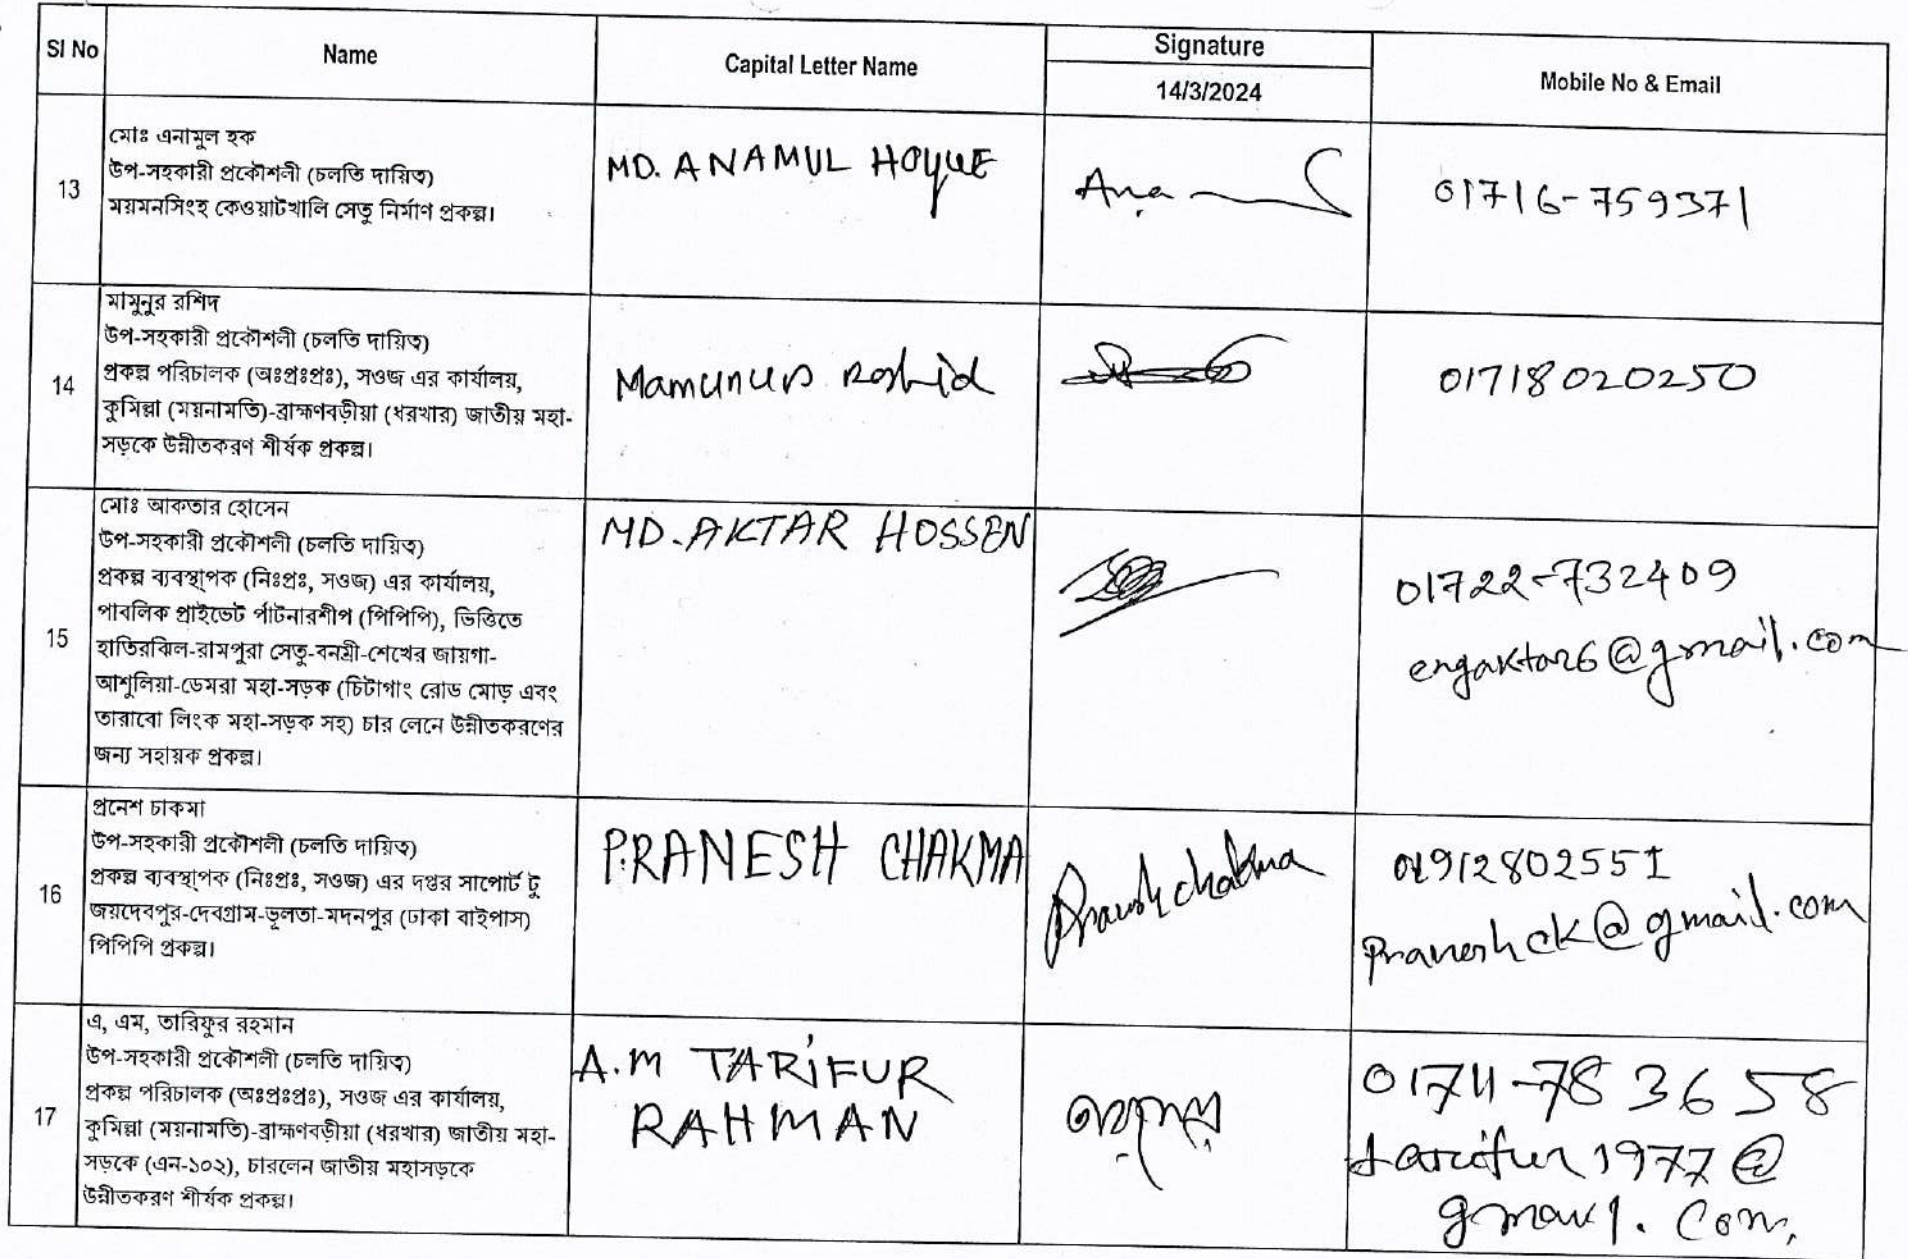 Sl No
Name
Capital Letter Name
Signature
14/3/2024
Mobile No & Email
13
মোঃ এনামুল হক
উপ-সহকারী প্রকৌশলী (চলতি দায়িত্ব)
ময়মনসিংহ কেওয়াটখালি সেতু নির্মাণ প্রকল্প।
MD. ANAMUL HOQUE
01716-759371
14
মামুনুর রশিদ
উপ-সহকারী প্রকৌশলী (চলতি দায়িত্ব)
প্রকল্প পরিচালক (অঃপ্রঃপ্রঃ), সওজ এর কার্যালয়,
কুমিল্লা (ময়নামতি)-ব্রাহ্মণবড়ীয়া (ধরখার) জাতীয় মহা-
সড়কে উন্নীতকরণ শীর্ষক প্রকল্প।
Mamunur Roshid
01718020250
15
মোঃ আকতার হোসেন
উপ-সহকারী প্রকৌশলী (চলতি দায়িত্ব)
প্রকল্প ব্যবস্থাপক (নিঃপ্রঃ, সওজ) এর কার্যালয়,
পাবলিক প্রাইভেট র্পাটনারশীপ (পিপিপি), ভিত্তিতে
হাতিরঝিল-রামপুরা সেতু-বনশ্রী-শেখের জায়গা-
আশুলিয়া-ডেমরা মহা-সড়ক (চিটাগাং রোড মোড় এবং
তারাবো লিংক মহা-সড়ক সহ) চার লেনে উন্নীতকরণের
জন্য সহায়ক প্রকল্প।
MD. AKTAR HOSSEN
01722-732409
engaktar26@gmail.com
16
প্রনেশ চাকমা
উপ-সহকারী প্রকৌশলী (চলতি দায়িত্ব)
প্রকল্প ব্যবস্থাপক (নিঃপ্রঃ, সওজ) এর দপ্তর সাপোর্ট টু
জয়দেবপুর-দেবগ্রাম-ভূলতা-মদনপুর (ঢাকা বাইপাস)
পিপিপি প্রকল্প।
PRANESH CHAKMA
Pranesh chakma
01912802551
Praneshck@gmail.com
17
এ, এম, তারিফুর রহমান
উপ-সহকারী প্রকৌশলী (চলতি দায়িত্ব)
প্রকল্প পরিচালক (অঃপ্রঃপ্রঃ), সওজ এর কার্যালয়,
কুমিল্লা (ময়নামতি)-ব্রাহ্মণবড়ীয়া (ধরখার) জাতীয় মহা-
সড়কে (এন-১০২), চারলেন জাতীয় মহাসড়কে
উন্নীতকরণ শীর্ষক প্রকল্প।
A.M TARIFUR
RAHMAN
tarifur1977@
gmail.com,